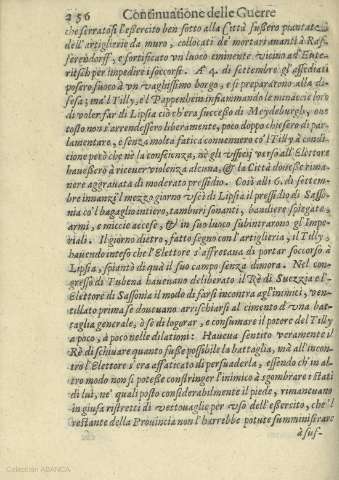 256 Continuatione delle Guerre
che serratosi l'esercito ben sotto alla Città fussero piantate
dell'artiglierie da muro, collocati de' mortari auanti à Raf-
ferendorff, e fortificato vn luoco eminente vicino ad Eute-
ritsch per impedire i soccorsi. A 4. di settembre gl'assediati
posero fuoco à vn vaghissimo borgo, e si prepararono alla di-
fesa; ma'l Tilly, e'l Pappenheim infiammando le minaccie loro
di voler far di Lipsia ciò ch'era successo di Meydeburgh, oue
tosto non s'arrendessero liberamente, poco doppo chiesero di par-
lamentare, e senza molta fatica conuenero co'l Tilly à condi-
tione però che nè la conscienza, nè gli vfficij verso all'Elettore
hauessero à riceuer violenza alcuna, & la Città douesse rima-
nere aggrauata di moderato pressidio. Così alli 6. di settem-
bre innanzi'l mezzo giorno vscì di Lipsia il pressidio di Sasso-
nia co'l bagaglio intiero, tamburi sonanti, bandiere spiegate,
armi, e miccie accese, & in suo luoco subintrarono gl'Impe-
riali. Il giorno dietro, fatto segno con l'artiglieria, il Tilly,
hauendo inteso che l'Elettore s'affrettaua di portar soccorso à
Lipsia, spiantò di quà il suo campo senza dimora. Nel con-
gresso di Tubena haueano deliberato il Rè di Suezzia e l'
Elettore di Sassonia il modo di farsi incontra agl'inimici, ven-
tillato prima se doueuano arrischiarsi al cimento d'vna bat-
taglia generale, ò se di logorar, e consumare il potere del Tilly
a poco, à poco nelle dilationi. Haueua sentito veramente il
Rè di schiuare quanto fusse possibile la battaglia, mà all'incon-
tro l'Elettore s'era affaticato di persuaderla, essendo ch'in al-
tro modo non si potesse constringer l'inimico à sgombrare i stati
di lui, ne' quali posto considerabilmente il piede, rimaneuano
in giusa ristretti di vettouaglie per vso dell'essercito, che'l
restante della Prouincia non l'harebbe potute sumministrare
à suf-
Colección ABANCA